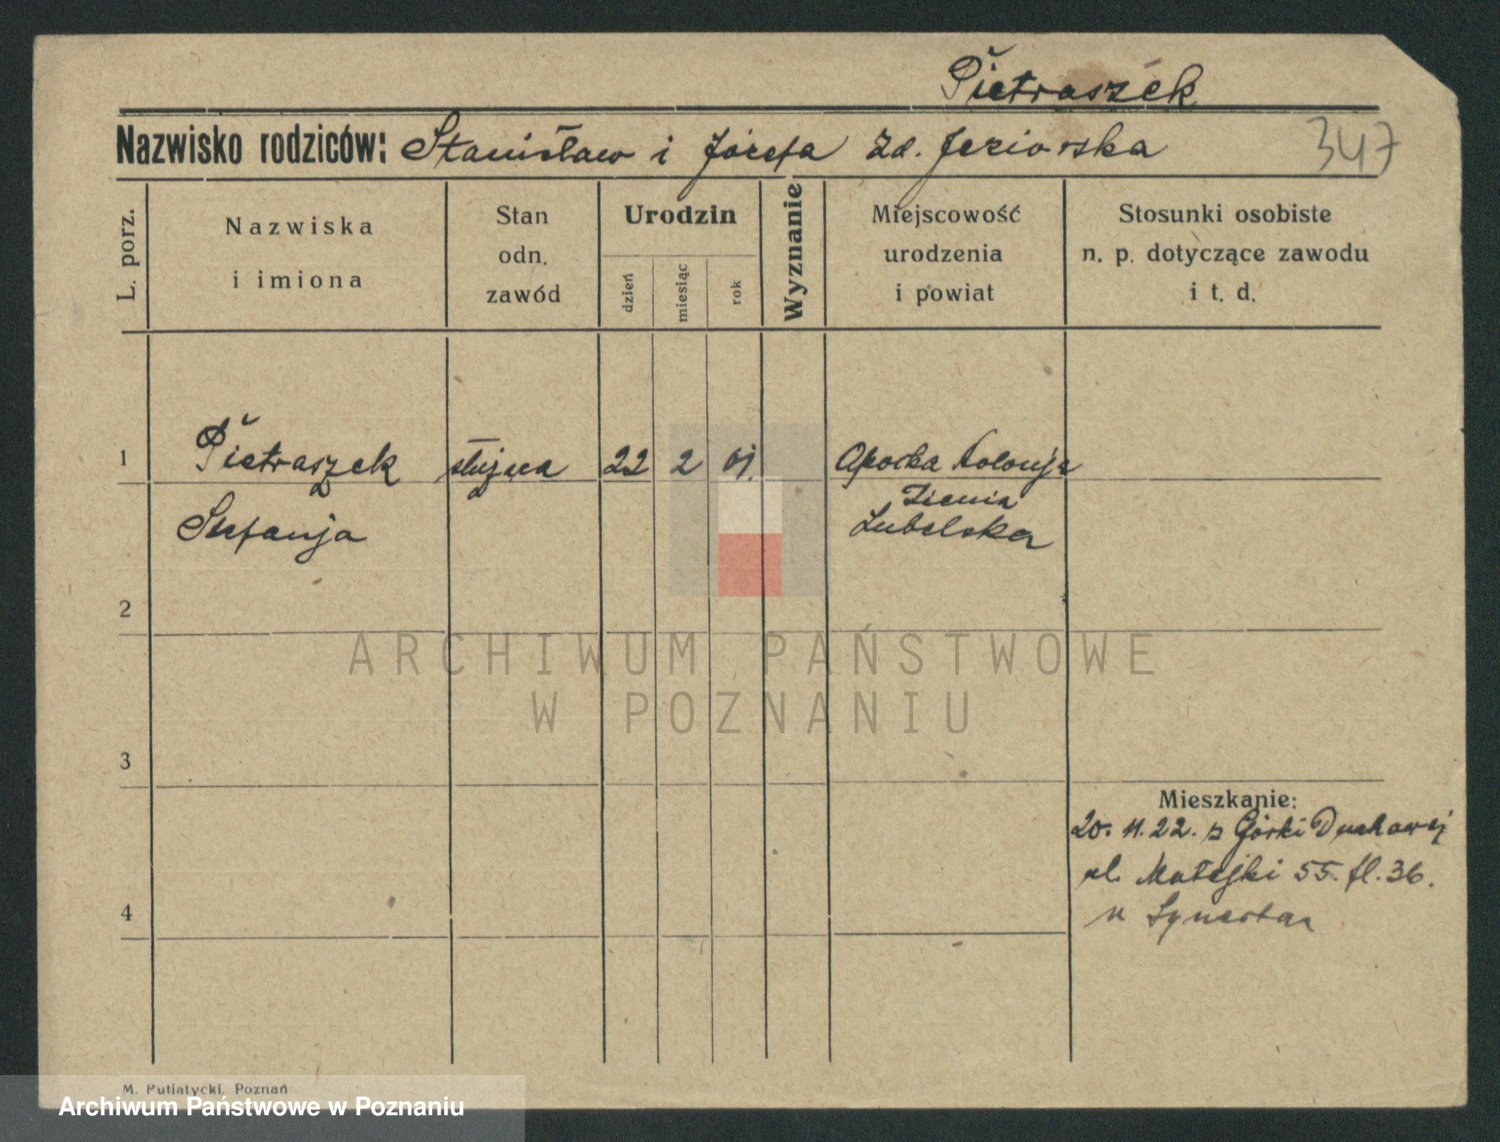 Pietraszek
Nazwisko rodziców: Stanisław i Józefa zd. Jeziorska 347
L. porz.
Nazwiska
i imiona
Stan
odn.
zawód
Urodzin
dzień
miesiąc
rok
Wyznanie
Miejscowość
urodzenia
i powiat
Stosunki osobiste
n. p. dotyczące zawodu
i t. d.
1 Pietraszek służąca 22 2 01. Opoka Kolonja
Stefanja
Ziemia
Lubelska
2
3
4
Mieszkanie:
20. 11. 22. z Górki Duchowej
ul. Matejki 55. fl. 36.
u
M. Putiatycki, Poznań
ARCHIWUM PAŃSTWOWE
W POZNANIU
Archiwum Państwowe w Poznaniu